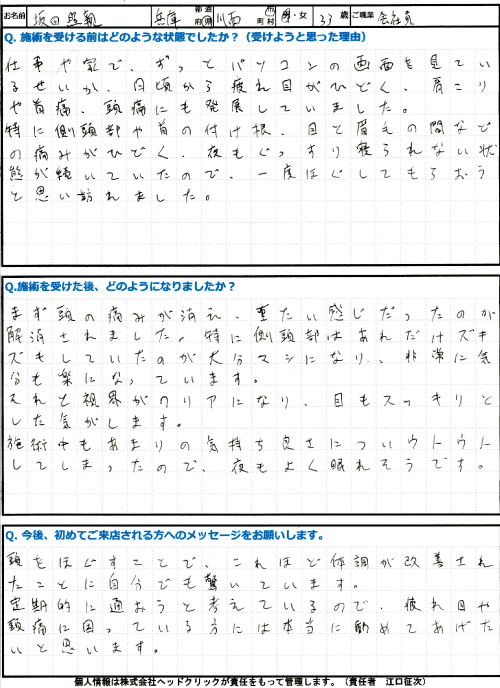 お名前 坂田 兵庫 都道府県 川西 市町村 男・女 33 歳 ご職業 会社員
Q. 施術を受ける前はどのような状態でしたか？（受けようと思った理由）
仕事や家で、ずっとパソコンの画面を見てい
るせいか、日頃から疲れ目がひどく、肩こり
や首痛、頭痛にも発展していました。
特に側頭部や首の付け根、目と眉毛の間など
の痛みがひどく、夜もぐっすり寝られない状
態が続いていたので、一度ほぐしてもらおう
と思い訪れました。
Q.施術を受けた後、どのようになりましたか？
まず頭の痛みが消え、重たい感じだったのが
解消されました。特に側頭部はあれだけズキ
ズキしていたのが大分マシになり、非常に気
分も楽になっています。
それと視界がクリアになり、目もスッキリと
した気がします。
施術中もあまりの気持ち良さについウトウト
してしまったので、夜もよく眠れそうです。
Q. 今後、初めてご来店される方へのメッセージをお願いします。
頭をほぐすことで、これほど体調が改善され
たことに自分でも驚いています。
定期的に通おうと考えているので、疲れ目や
頭痛に困っている方には本当に勧めてあげた
いと思います。
個人情報は株式会社ヘッドクリックが責任をもって管理します。（責任者 江口征次）